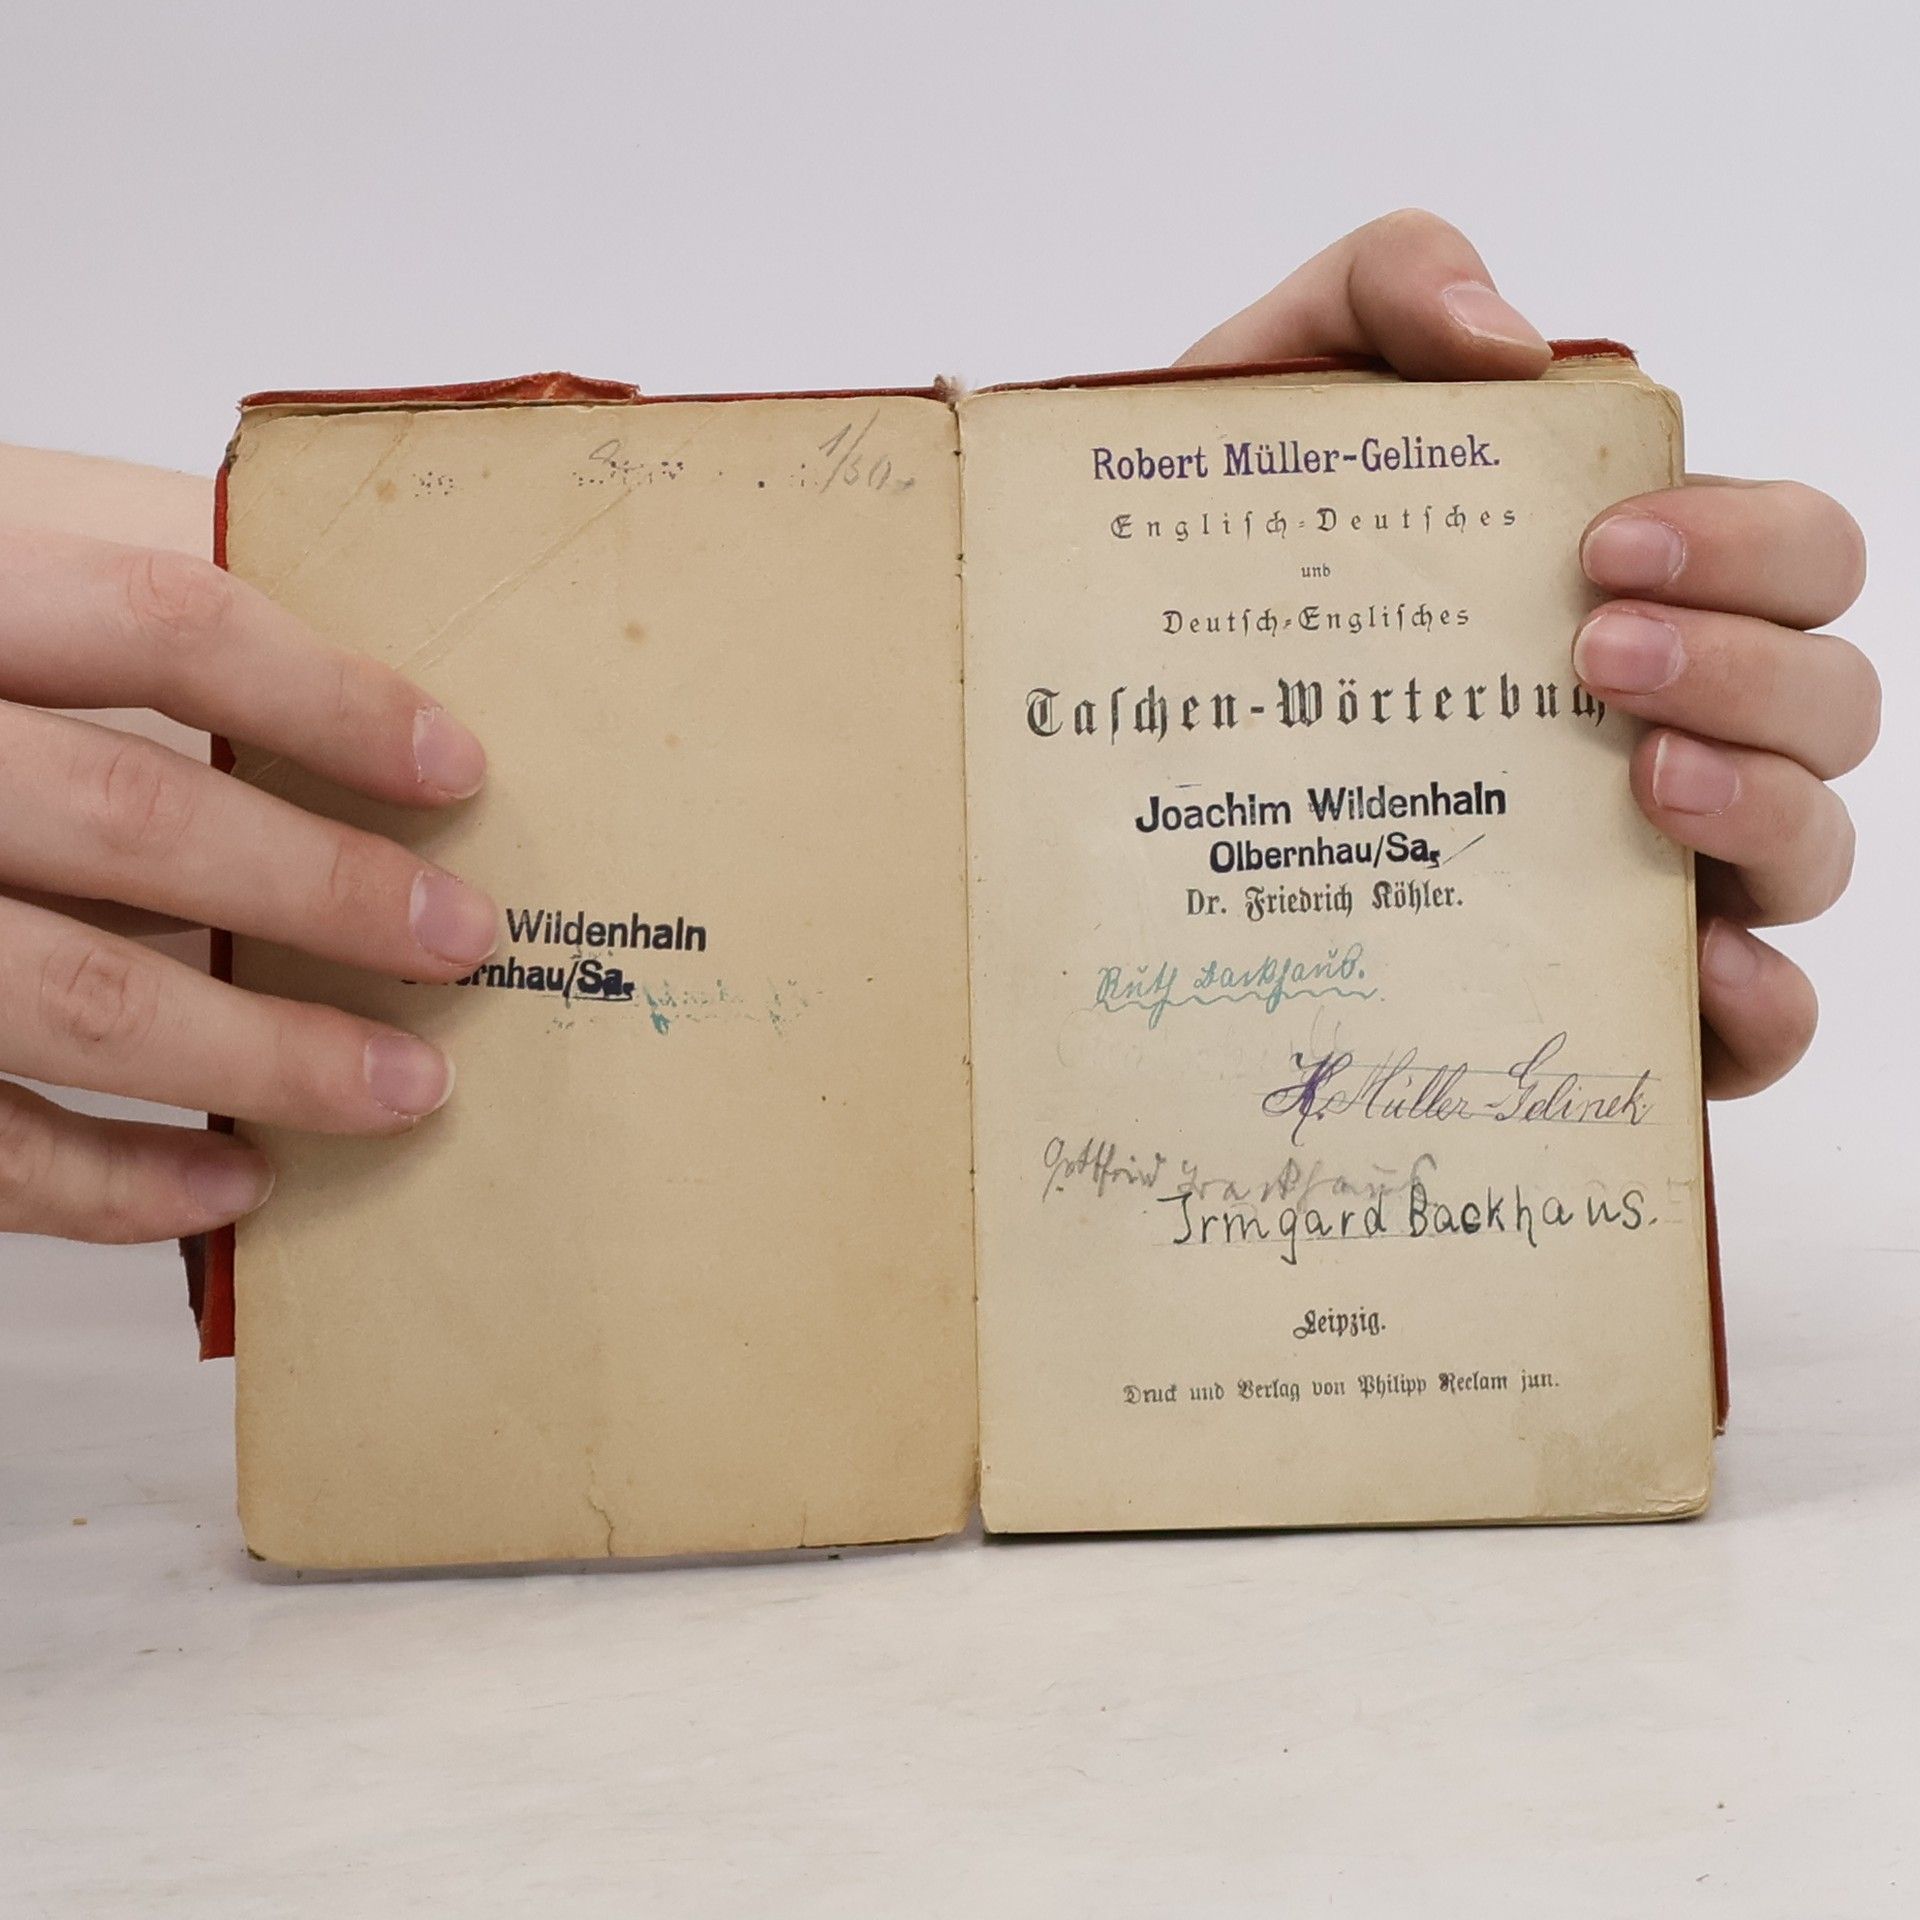 1/50.
Wildenhain
rnhau/Sa.
Robert Müller-Gelinek.
Engliſch-Deutſches
und
Deutſch-Engliſches
Taſchen-Wörterbuch
Joachim Wildenhain
Olbernhau/Sa.
Dr. Friedrich Köhler.
Ruth Backhaus.
K. Müller-Gelinek
Gottfried Backhaus
Irmgard Backhaus.
Leipzig.
Druck und Verlag von Philipp Reclam jun.